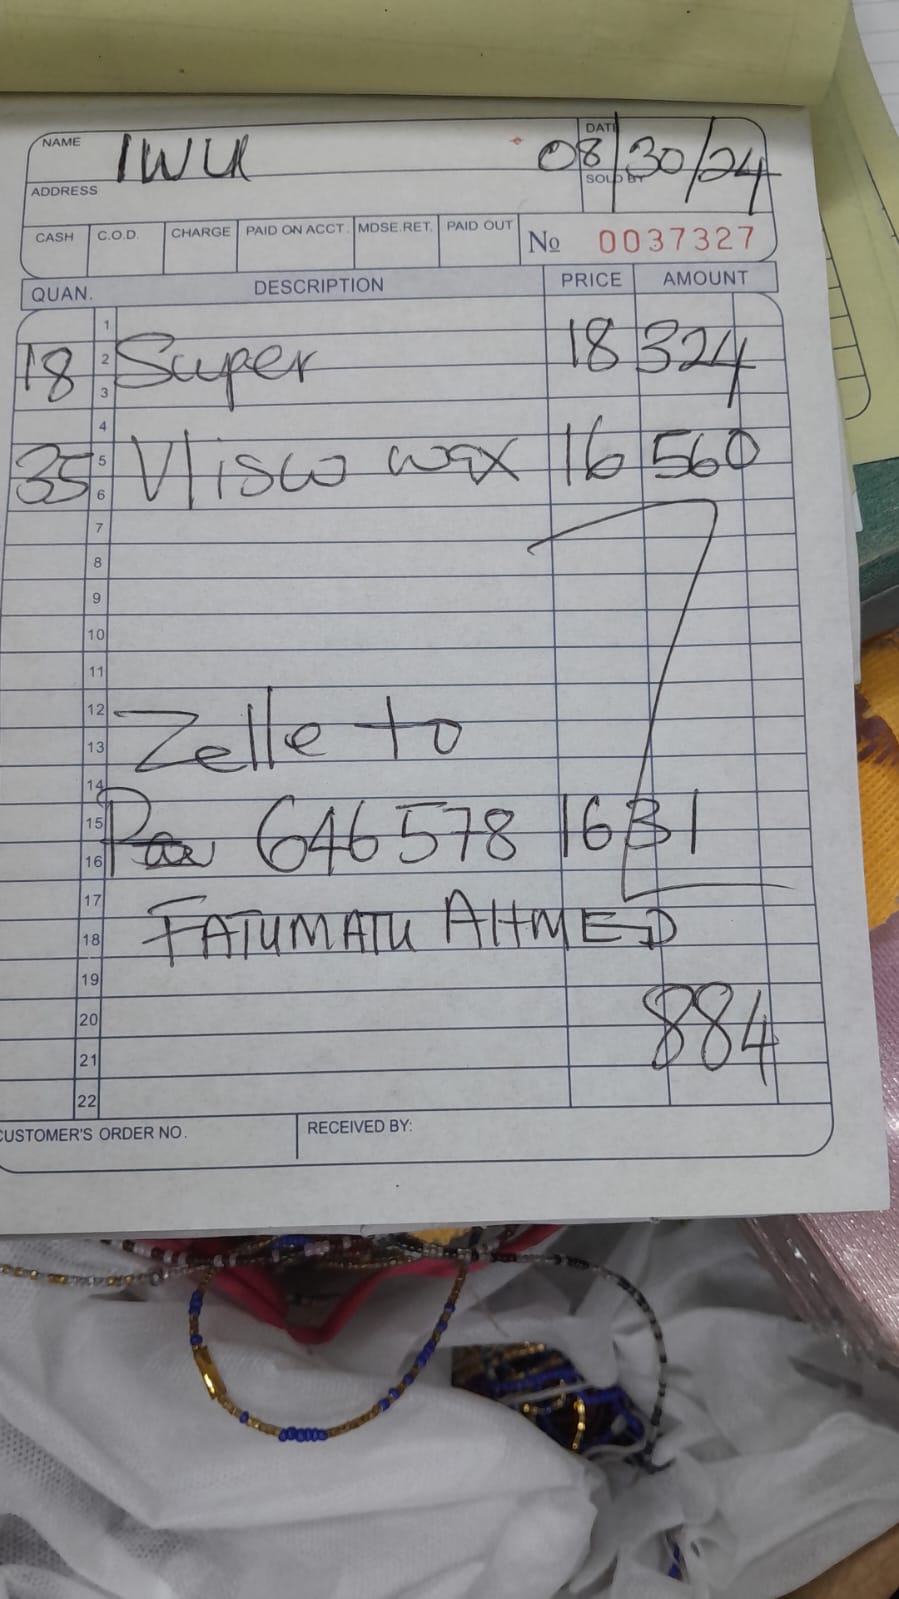 NAME IWU DATE 08/30/24
ADDRESS SOLD BY
CASH C.O.D. CHARGE PAID ON ACCT. MDSE.RET. PAID OUT No 0037327
QUAN. DESCRIPTION PRICE AMOUNT
1
18 2 Super 18 324
3
4
35 5 Vlisco wax 16 560
6
7
8
9
10
11
12
13 Zelle to
14
15 646 578 1631
16
17
18 FATUMATU AHMED
19
20 884
21
22
CUSTOMER'S ORDER NO. RECEIVED BY: